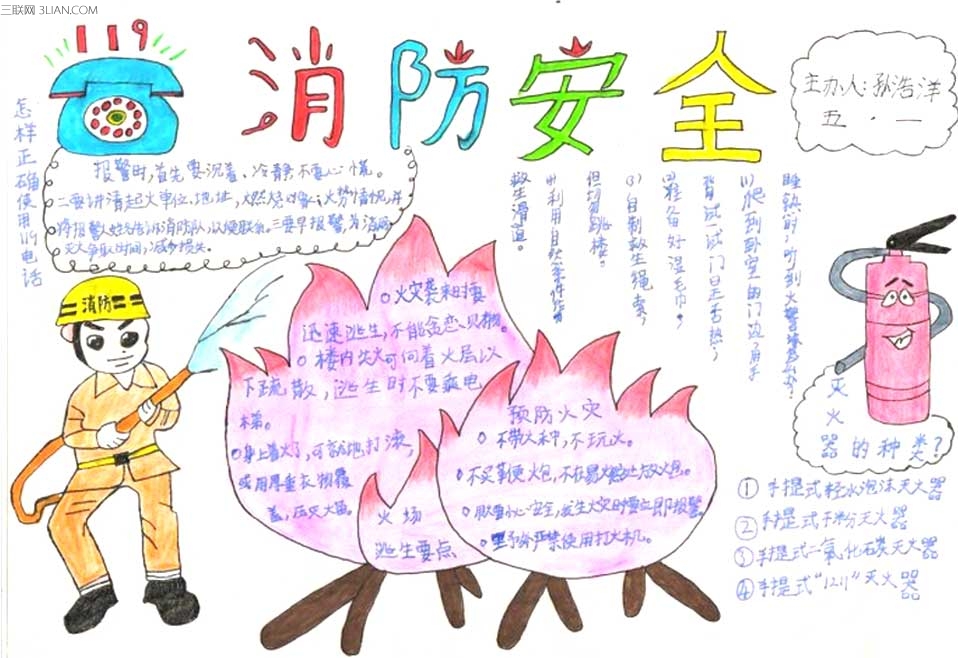 三联网 3LIAN.COM
119
消防安全
主办人:孙浩洋
五·一
怎样正确使用119电话
报警时,首先要沉着、冷静不要心慌。
二要讲清起火单位、地址,燃烧对象、火势情况,并
将报警人姓名告诉消防队,以便联系。三要早报警,为消防
灭火争取时间,减少损失。
消防
睡镇时,听到火警怎么办?
(1)爬到卧室的门边,用手
背试一试门是否热;
(2)准备好湿毛巾;
(3)自制救生绳索,
但切勿跳楼。
(4)利用自然条件作
救生滑道。
○火灾袭来时要
迅速逃生,不能贪恋财物。
○楼内失火可向着火层以
下疏散,逃生时不要乘电
梯。
○身上着火了,可就地打滚,
或用厚重衣物覆
盖,压灭火苗。
火场
逃生要点
预防火灾
○不带火种,不玩火。
○不买事便火炮,不在易燃处放火炮。
○用火要小心安全,发生火灾时要立即报警
○野外严禁使用打火机。
灭火器的种类?
①手提式轻水泡沫灭火器
②手提式干粉灭火器
③手提式二氧化碳灭火器
④手提式“1211”灭火器